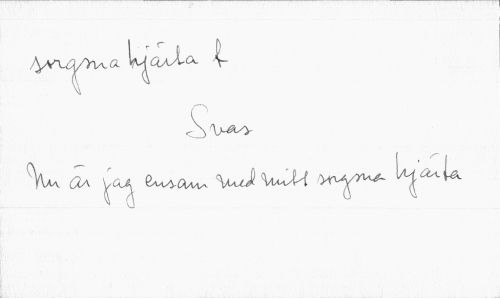 sorgsna hjärta t
Svas
Nu är jag ensam med mitt sorgsna hjärta